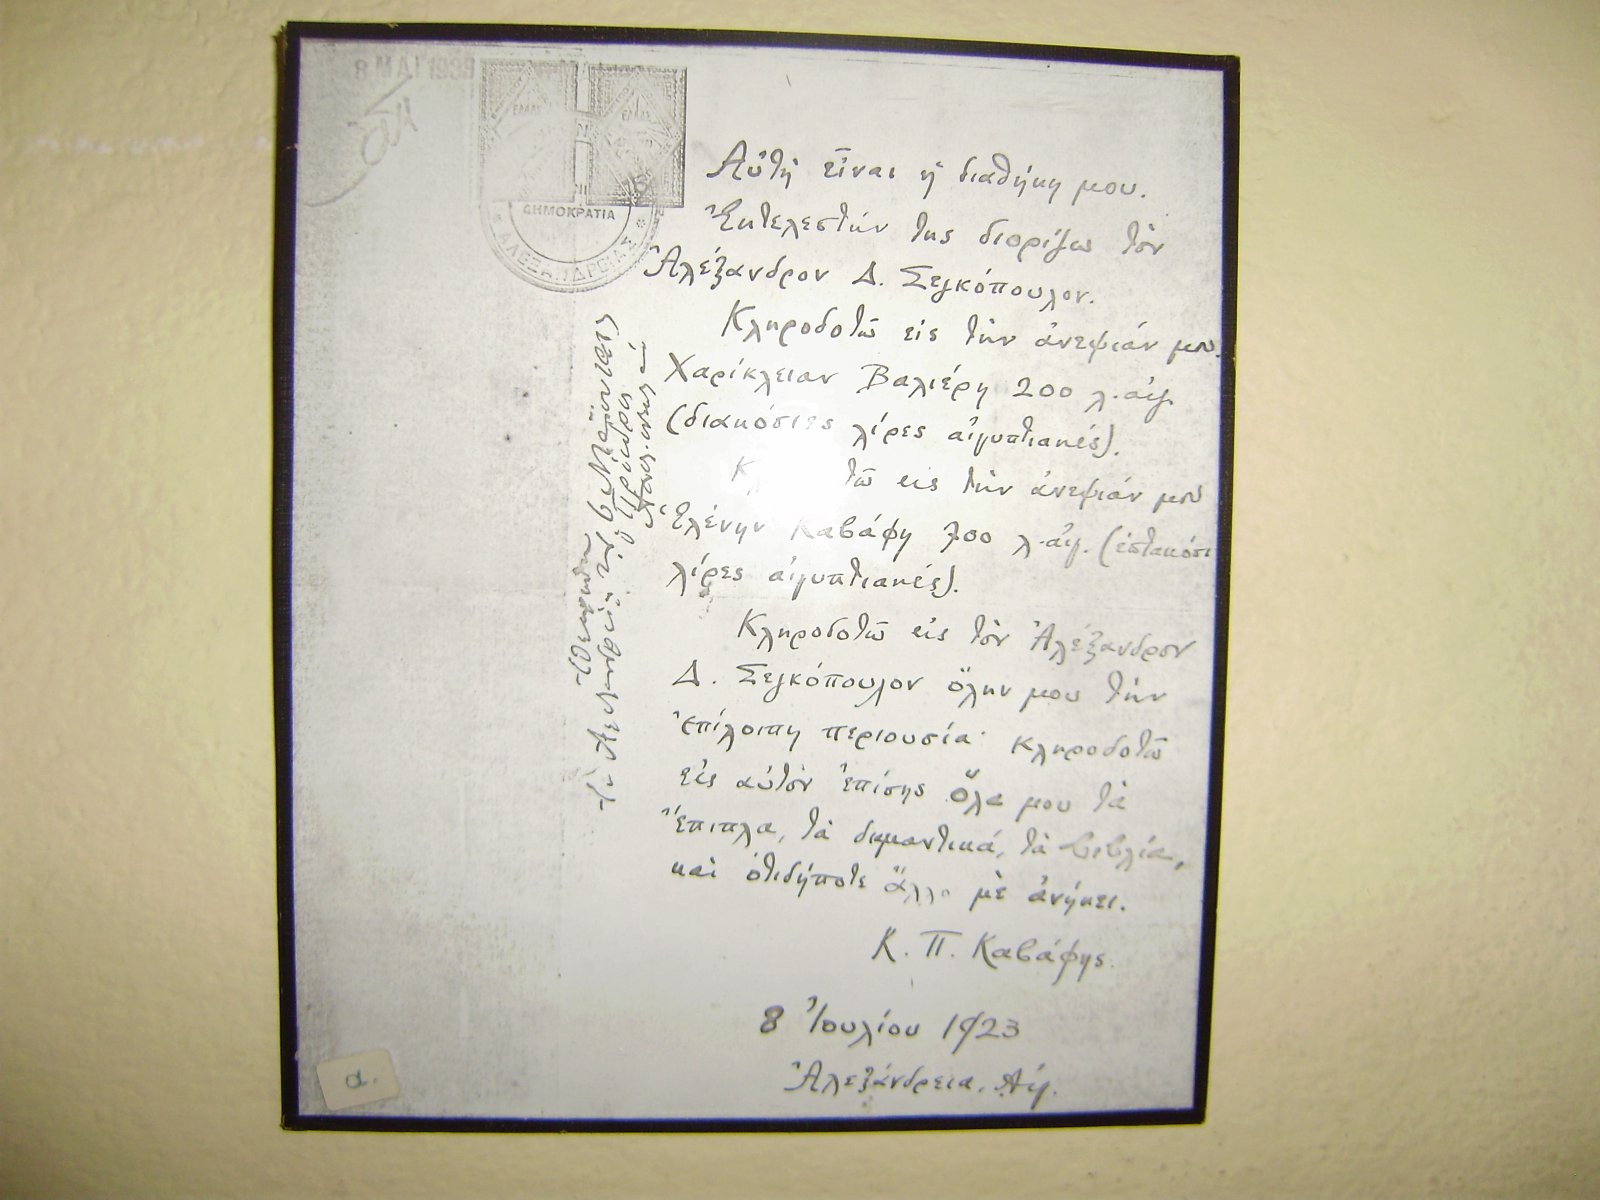 8 ΜΑΙ 1933
ΕΛΛΑΣ
ΕΛΛΑΣ
ΔΗΜΟΚΡΑΤΙΑ
ΑΛΕΞΑΝΔΡΕΙΑΣ
Αὐτὴ εἶναι ἡ διαθήκη μου.
Ἐκτελεστὴν της διορίζω τὸν
Ἀλέξανδρον Δ. Σεγκόπουλον.
Κληροδοτῶ εἰς τὴν ἀνεψιάν μου
Χαρίκλειαν Βαλιέρη 200 λ.αἰγ.
(διακόσιες λίρες αἰγυπτιακές).
Κ τῶ εἰς τὴν ἀνεψιάν μου
Ἑλένην Καβάφη 700 λ.αἰγ. (ἑπτακόσι
λίρες αἰγυπτιακές).
Κληροδοτῶ εἰς τὸν Ἀλέξανδρον
Δ. Σεγκόπουλον ὅλην μου τὴν
ἐπίλοιπη περιουσία· κληροδοτῶ
εἰς αὐτὸν ἐπίσης ὅλα μου τὰ
ἔπιπλα, τὰ διαμαντικά, τὰ βιβλία,
καὶ ὁτιδήποτε ἄλλο μὲ ἀνήκει.
Κ. Π. Καβάφης.
8 Ἰουλίου 1923
Ἀλεξάνδρεια. Αἴγ.
Ἐθεωρήθη
Ὁ Πρόεδρος
α.